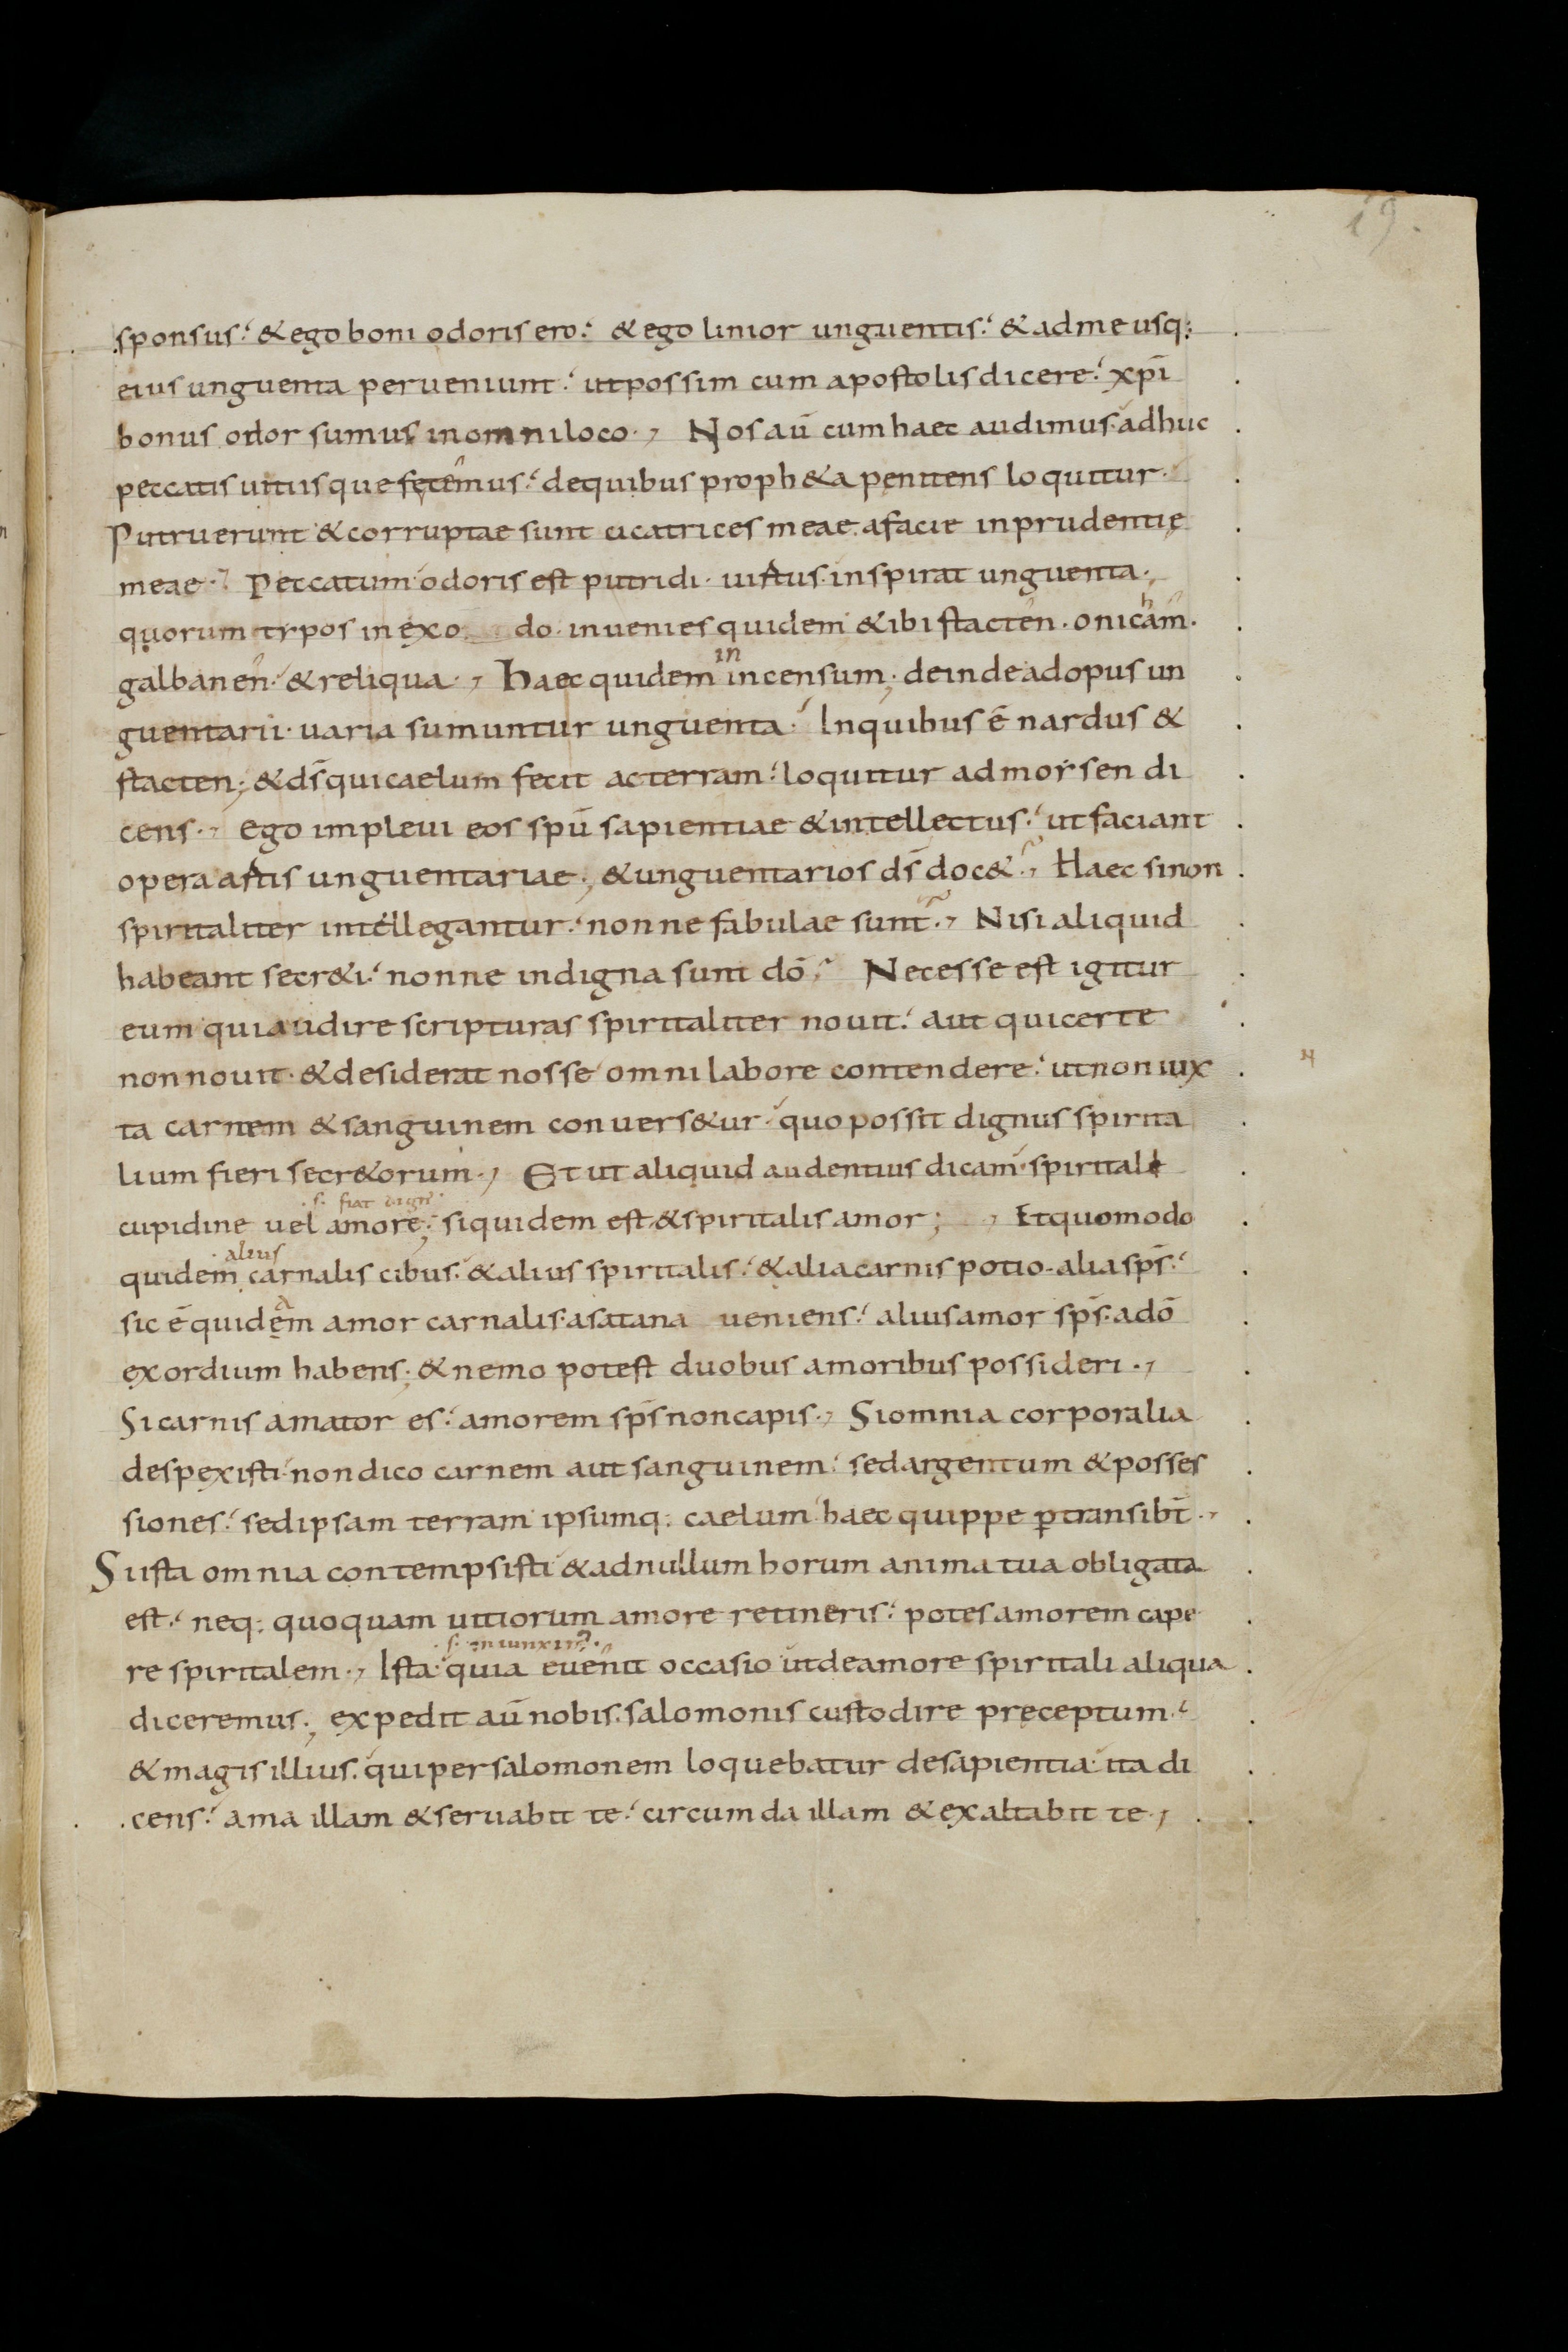 19.
sponsus. & ego boni odoris ero. & ego linior unguentis. & ad me usq;
eius unguenta perueniunt. ut possim cum apostolis dicere. xp̄i
bonus odor sumus in omni loco., Nos aū cum haec audimus. adhuc
peccatis uitiisque fętemus. de quibus proph&a penitens loquitur.
Putruerunt & corruptae sunt cicatrices meae. a facie inprudentię
meae., Peccatum odoris est putridi. uirtus inspirat unguenta.,
quorum typos in exo do. inuenies quidem & ibi stacten. onicham.
galbanen. & reliqua., Haec quidem in incensum; deinde ad opus un
guentarii. uaria sumuntur unguenta. In quibus ē nardus &
stacten; & d̄s qui caelum fecit ac terram. loquitur ad moysen di
cens., ego impleui eos spū sapientiae & intellectus. ut faciant
opera artis unguentariae; & unguentarios d̄s doc&., Haec si non
spiritaliter intellegantur. nonne fabulae sunt., Nisi aliquid
habeant secr&i. nonne indigna sunt dō. Necesse est igitur
eum qui audire scripturas spiritaliter nouit. aut qui certe
non nouit. & desiderat nosse omni labore contendere. ut non iux
ta carnem & sanguinem conuers&ur. quo possit dignus spirita
lium fieri secr&orum., Et ut aliquid audentius dicam. spiritali
.s. fiat dign'.
cupidine uel amore; siquidem est & spiritalis amor; , Et quomodo
. alius
quidem carnalis cibus. & alius spiritalis. & alia carnis potio. alia sp̄s.
sic ē quidam amor carnalis. a satana ueniens. alius amor sp̄s. a dō
exordium habens; & nemo potest duobus amoribus possideri.,
Si carnis amator es. amorem sp̄s non capis., Si omnia corporalia
despexisti. non dico carnem aut sanguinem. sed argentum & posses
siones. sed ipsam terram ipsumq; caelum. haec quippe ꝑtransibt̄.,
Si ista omnia contempsisti & ad nullum horum anima tua obligata
est. neq; quoquam uitiorum amore retineris. potes amorem cape
re spiritalem., Ista quia euenit occasio ut de amore spiritali aliqua
diceremus; expedit aū nobis. salomonis custodire pręceptum.
& magis illius. qui per salomonem loquebatur de sapientia. ita di
cens. ama illam & seruabit te. circumda illam & exaltabit te.,